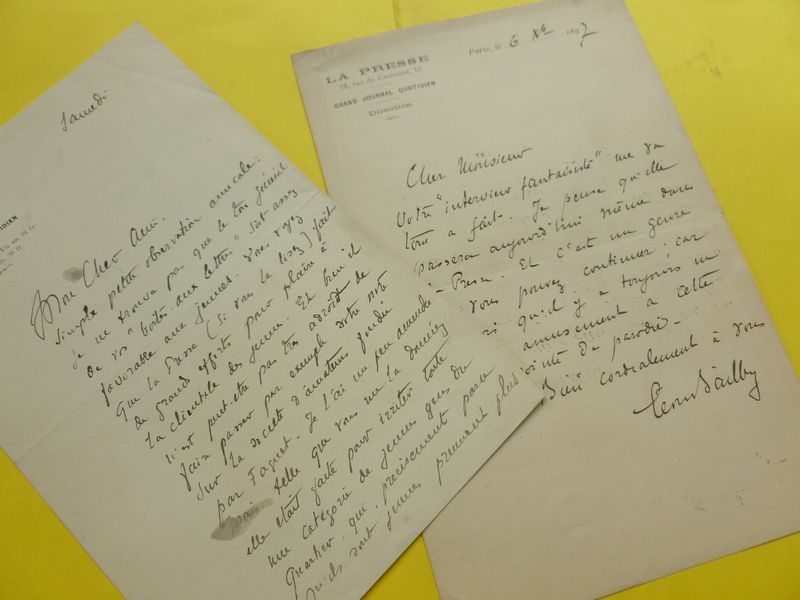 Samedi
Mon Cher Ami,
Simple petite observation amicale:
je ne trouve pas que le ton général
de vos "boîtes aux lettres" soit assez
favorable aux jeunes. Vous voyez
que la Presse (si vous la lisez) fait
de grands efforts pour plaire à
la clientèle des jeunes. Eh bien il
n'est peut-être pas très adroit de
faire passer par exemple votre note
sur la société d'amateurs fondée
par Faguet. Je l'ai un peu amendé
mais telle que vous me la donniez
elle était faite pour irriter toute
une catégorie de jeunes gens du
Quartier qui, précisément parce
qu'ils sont jeunes prennent plus
LA PRESSE
12, rue du Croissant, 12
GRAND JOURNAL QUOTIDIEN
Direction
Paris, le 6 Xbre 1897
Cher Monsieur
Votre "interview fantaisiste" me va
tout à fait. Je pense qu'elle
passera aujourd'hui même dans
Presse. Et c'est un genre
vous pouvez continuer car
qu'il y a toujours un
amusement à cette
pointe de parodie.
Bien cordialement à vous
Léon Bailby